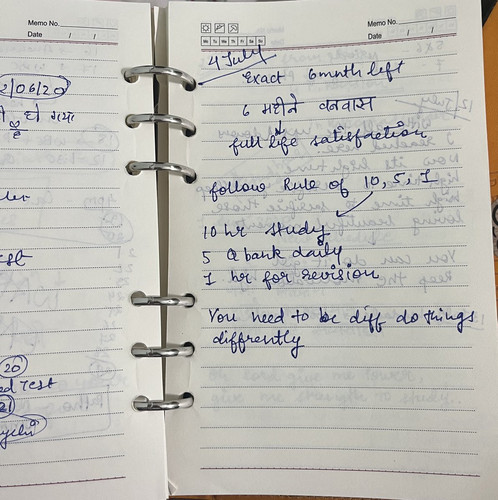 2/06/20
हो गया
है
st
20
ed Test
21
Memo No.
Date / /
Memo No.
Date / /
Mo Tu We Th Fr Sa Su
4 July
Exact 6mnth left
6 महीने वनवास
full life satisfaction
follow Rule of 10, 5, 1
10 hr study
5 Q bank daily
1 hr for revision
You need to be diff do things
diffrently